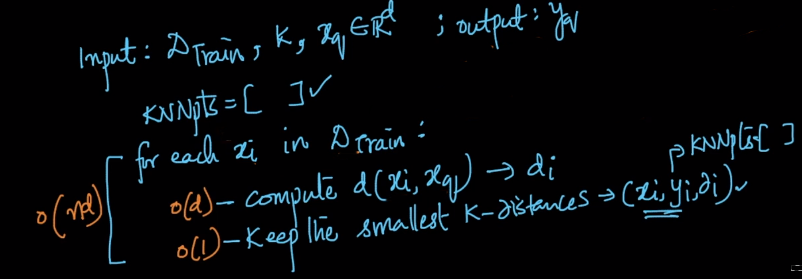 Input: D Train, K, xq ∈ ℝ^d ; output: yq
KNNpts = [ ] ✓
for each xi in D Train:
→ KNNpts[ ]
O(nd)
O(d) – compute d(xi, xq) → di
O(1) – Keep the smallest K-distances → (xi, yi, di) ✓